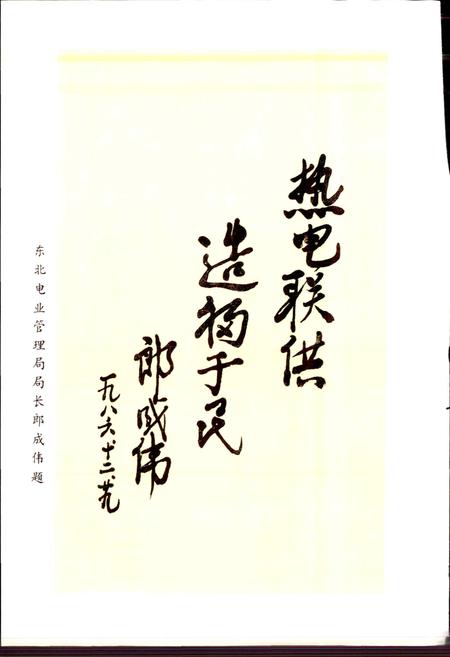 热电联供
造福于民
郎成伟
一九八六、十二、廿九
东北电业管理局局长郎成伟题